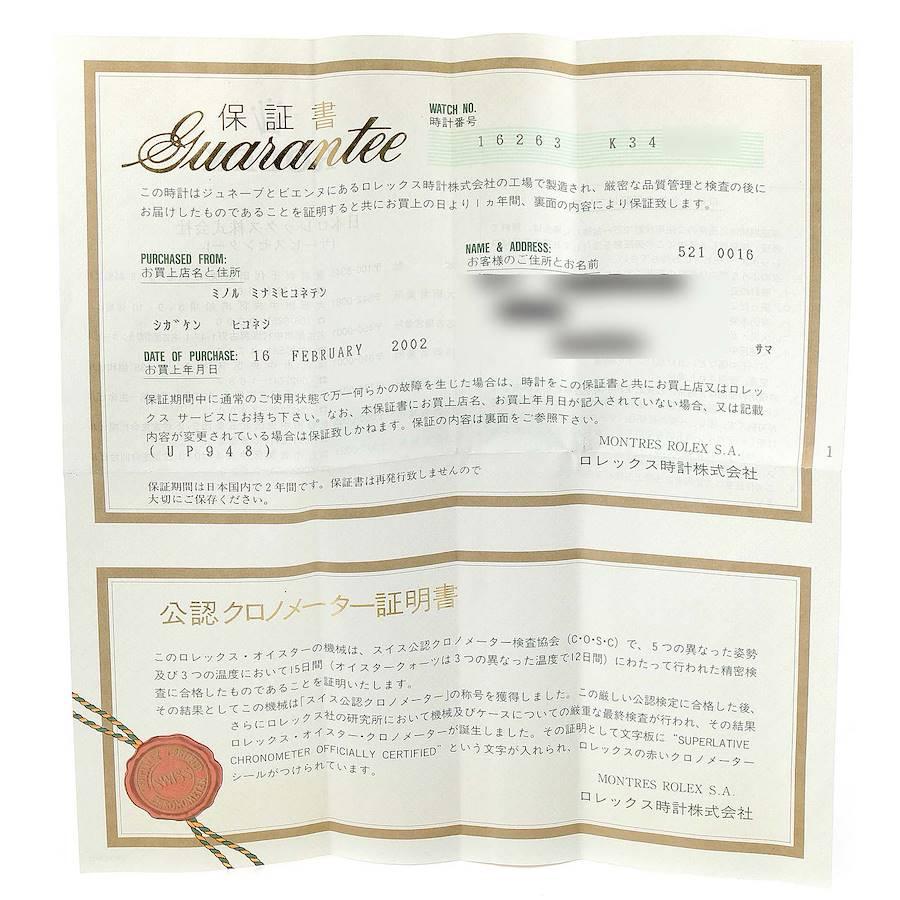 保証書
Guarantee
WATCH NO.
時計番号
16263 K34
この時計はジュネーブとビエンヌにあるロレックス時計株式会社の工場で製造され、厳密な品質管理と検査の後に
お届けしたものであることを証明すると共にお買上の日より1ヵ年間、裏面の内容により保証致します。
PURCHASED FROM:
お買上店名と住所
ミノル ミナミヒコネテン
シガケン ヒコネシ
NAME & ADDRESS:
お客様のご住所とお名前
521 0016
サマ
DATE OF PURCHASE: 16 FEBRUARY 2002
お買上年月日
保証期間中に通常のご使用状態で万一何らかの故障を生じた場合は、時計をこの保証書と共にお買上店又はロレッ
クス サービスにお持ち下さい。なお、本保証書にお買上店名、お買上年月日が記入されていない場合、又は記載
内容が変更されている場合は保証致しかねます。保証の内容は裏面をご参照下さい。
(UP948)
MONTRES ROLEX S.A.
ロレックス時計株式会社
1
保証期間は日本国内で2年間です。保証書は再発行致しませんので
大切にご保存ください。
公認クロノメーター証明書
このロレックス・オイスターの機械は、スイス公認クロノメーター検査協会(C・O・S・C)で、5つの異なった姿勢
及び3つの温度において15日間(オイスタークォーツは3つの異なった温度で12日間)にわたって行われた精密検
査に合格したものであることを証明いたします。
その結果としてこの機械は「スイス公認クロノメーター」の称号を獲得しました。この厳しい公認検定に合格した後、
さらにロレックス社の研究所において機械及びケースについての厳重な最終検査が行われ、その結果
ロレックス・オイスター・クロノメーターが誕生しました。その証明として文字板に"SUPERLATIVE
CHRONOMETER OFFICIALLY CERTIFIED"という文字が入れられ、ロレックスの赤いクロノメーター
シールがつけられています。
MONTRES ROLEX S.A.
ロレックス時計株式会社
SWISS
CHRONOMETER